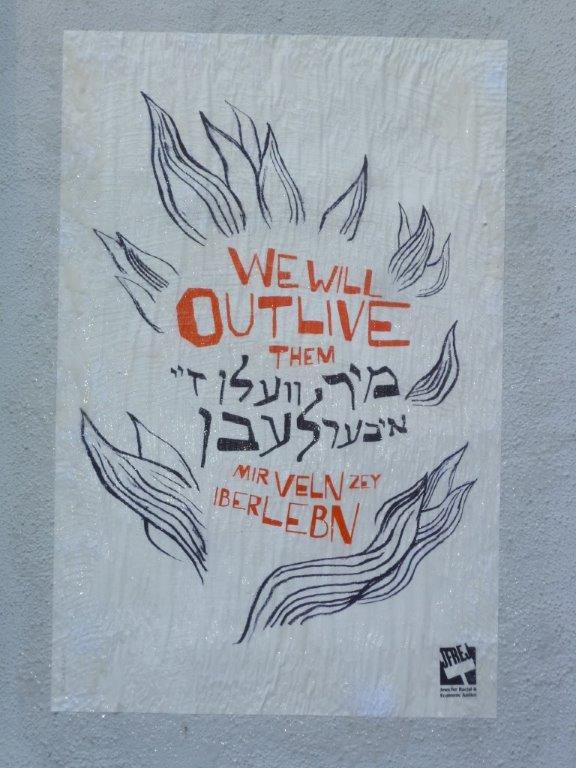 WE WILL
OUTLIVE
THEM
מיר וועלן זיי
איבערלעבן
MIR VELN ZEY
IBERLEBN
JFREJ
Jews for Racial &
Economic Justice